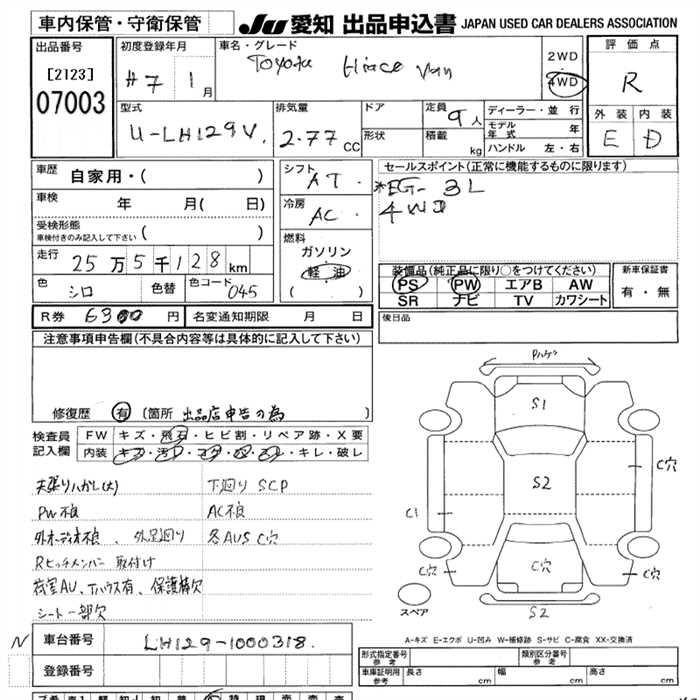 車内保管・守衛保管
JU 愛知 出品申込書 JAPAN USED CAR DEALERS ASSOCIATION
出品番号
[2123]
07003
初度登録年月
H7 1月
車名・グレード
Toyota Hiace Van
2WD
4WD
評価点
R
外装 内装
E D
型式
U-LH129V
排気量
2.77 CC
ドア
形状
定員 9人
積載 kg
ディーラー・並行
モデル年式 年
ハンドル 左・右
車歴 自家用・( )
車検 年 月( 日)
受検形態
車検付きのみ記入して下さい ( )
走行 25万5千128km
色 シロ 色替 色コード 045
シフト AT
冷房 AC
燃料
ガソリン
軽油
( )
セールスポイント(正常に機能するものに限ります)
*EG- 3L
4WD
装備品(純正品に限り○をつけてください)
PS PW エアB AW
SR ナビ TV カワシート
新車保証書
有・無
R券 6300 円 名変通知期限 月 日
後日品
注意事項申告欄(不具合内容等は具体的に記入して下さい)
修復歴 有 〔箇所 出品店申告の為 〕
検査員
記入欄
FW キズ・飛石・ヒビ割・リペア跡・X要
内装 キズ・汚レ・コゲ・・・キレ・破レ
下廻りSCP
PW不良
AC不良
各AUS C穴
Rヒッチメンバー 取付け
シート一部欠
Pハゲ
S1
S2
C穴
C1
C穴
C穴
C穴
S2
スペア
A-キズ E-エクボ U-凹み W-補修跡 S-サビ C-腐食 XX-交換済
N
車台番号 LH129-1000318
登録番号
型式指定番号
参考
類別区分番号
参考
車庫証明用
参考
長さ cm 幅 cm 高さ cm